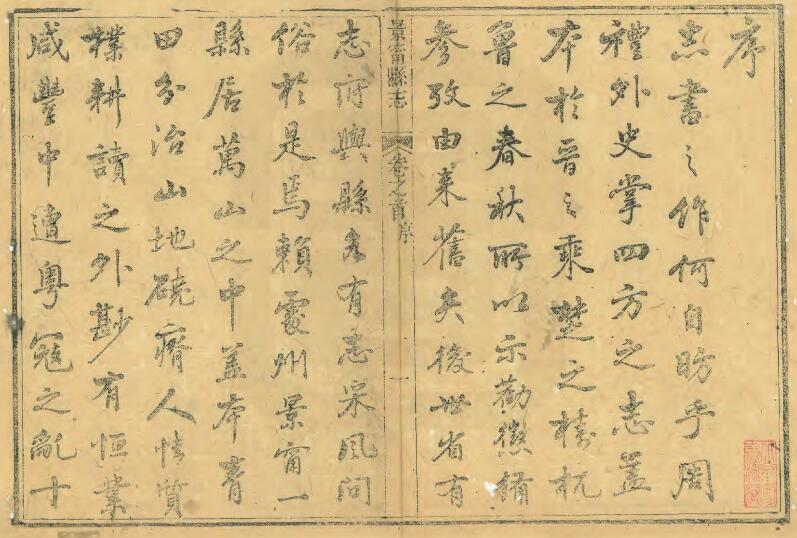 序
志書之作何自昉乎周
禮外史掌四方之志蓋
本於晉之乘楚之檮杌
魯之春秋所以示勸懲備
參攷由來舊矣後世省有
景甯縣志 卷之首 序 一
志府與縣各有志采風問
俗於是焉賴處州景甯一
縣居萬山之中蓋本青
田分治山地磽瘠人情質
樸耕讀之外尠有恒業
咸豐中遭粵寇之亂十